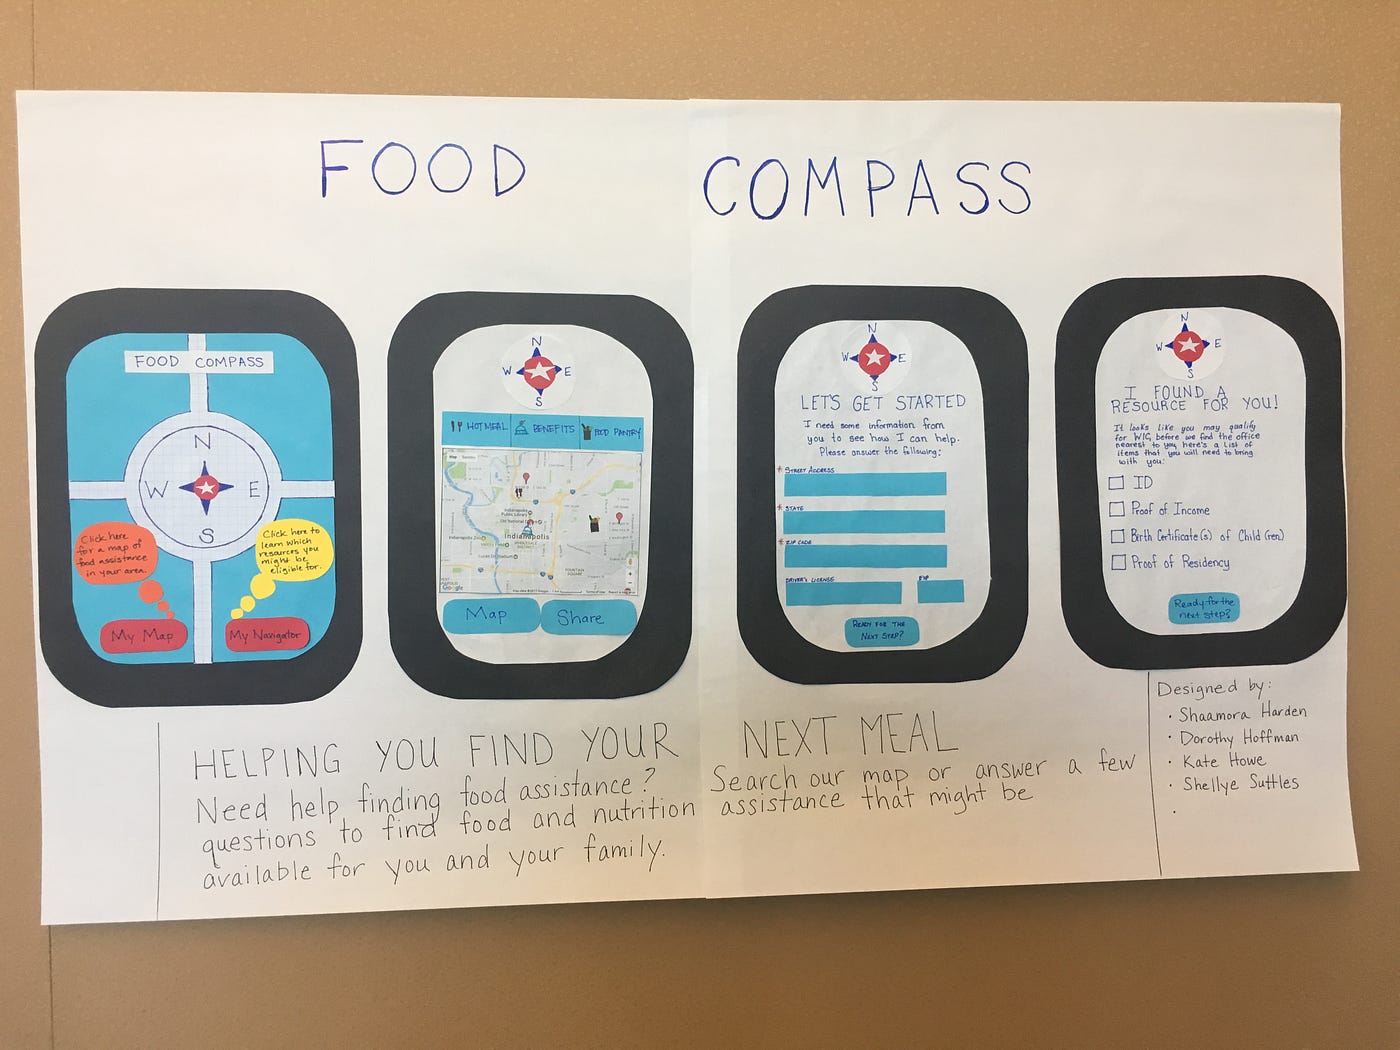 FOOD COMPASS
FOOD COMPASS
N
W E
S
Click here
for a map of
food assistance
in your area.
Click here to
learn which
resources you
might be
eligible for.
My Map
My Navigator
N
W E
S
HOT MEAL
BENEFITS
FOOD PANTRY
Indianapolis
Public Library
Indianapolis
Indianapolis Zoo
Lucas Oil Stadium
FOUNTAIN
SQUARE
Google
Map
Share
N
W E
S
LET'S GET STARTED
I need some information from
you to see how I can help.
Please answer the following:
* STREET ADDRESS
* STATE
* ZIP CODE
DRIVER'S LICENSE
EXP
READY FOR THE
NEXT STEP?
N
W E
S
I FOUND A
RESOURCE FOR YOU!
It looks like you may qualify
for WIC, before we find the office
nearest to you, here's a list of
items that you will need to bring
with you:
ID
Proof of Income
Birth Certificate(s) of Child(ren)
Proof of Residency
Ready for the
next step?
HELPING YOU FIND YOUR NEXT MEAL
Need help finding food assistance? Search our map or answer a few
questions to find food and nutrition assistance that might be
available for you and your family.
Designed by:
· Shaamora Harden
· Dorothy Hoffman
· Kate Howe
· Shellye Suttles
·